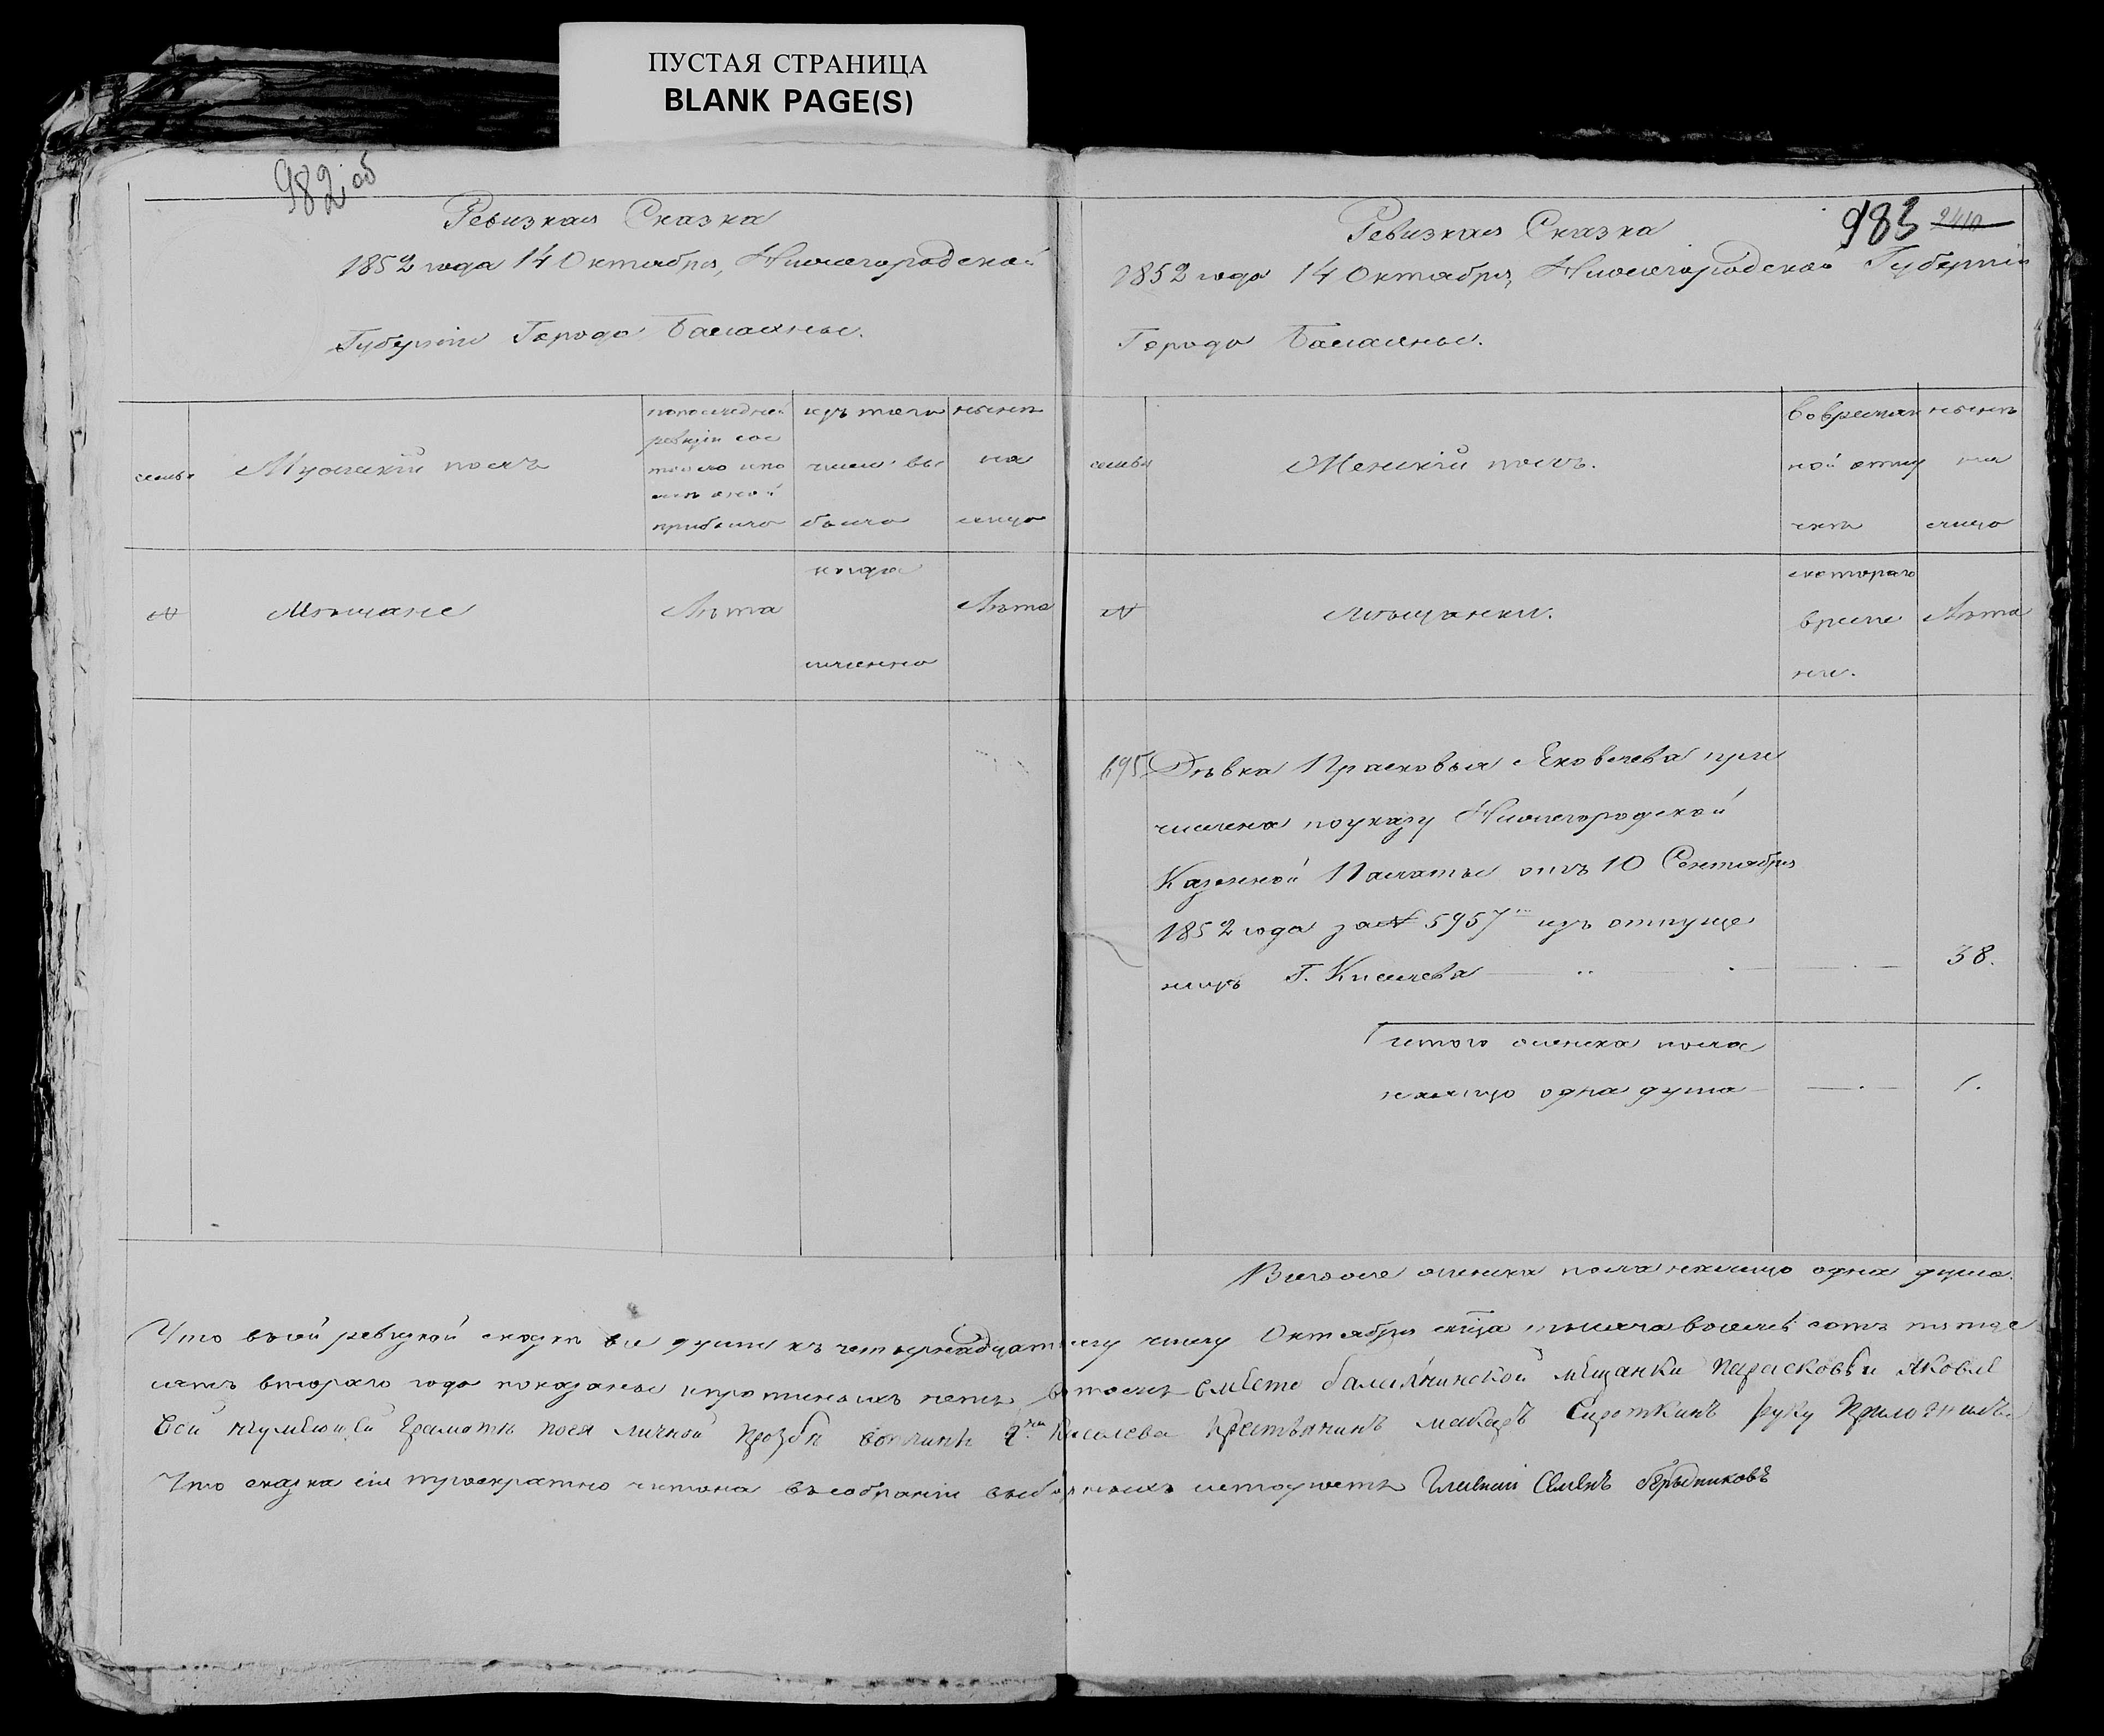 ПУСТАЯ СТРАНИЦА
BLANK PAGE(S)
982 об
Ревизкая Сказка
1852 года 14 Октября, Нижегородской
Губернии Города Балахны.
семьи
Мужский полъ
попоследней
ревизіи сос
тояло ипо
слѣ оной
прибыло
изъ того
числа вы
было
нынѣ
на
лицо
№
Мѣщане
Лѣта
когда
имянно
Лѣта
983 2410
Ревизкая Сказка
1852 года 14 Октября, Нижегородской Губерніи
Города Балахны.
семьи
Женскій полъ.
вовремян
ной отлу
чкѣ
нынѣ
на
лицо
№
Мѣщанки.
скотораго
време
ни.
Лѣта
695 Дѣвка Прасковья Яковлева при
числена поуказу Нижегородской
Казенной Палаты отъ 10 Сентября
1852 года за № 5957 изъ отпуще
ницъ Г. Киселева 38.
итого женска пола
налицо одна душа 1.
Всегоже женска пола налицо одна душа.
Что всей ревизкой сказкѣ все души къ четырнадцатому числу Октября мца тысяча восемь сотъ пятде
сятъ втораго года показаны ипротиныхъ нетъ, вътомъ вмѣсто балахнинской мѣщанки Парасковьи Яковле
вой неумѣющей Грамотѣ поея личной прозбѣ вотчины Гна Киселева крестьянинъ Макаръ Сироткинъ руку приложилъ
Что сказка сія троекратно читана въ собраніи выборныхъ втомъ Семенъ